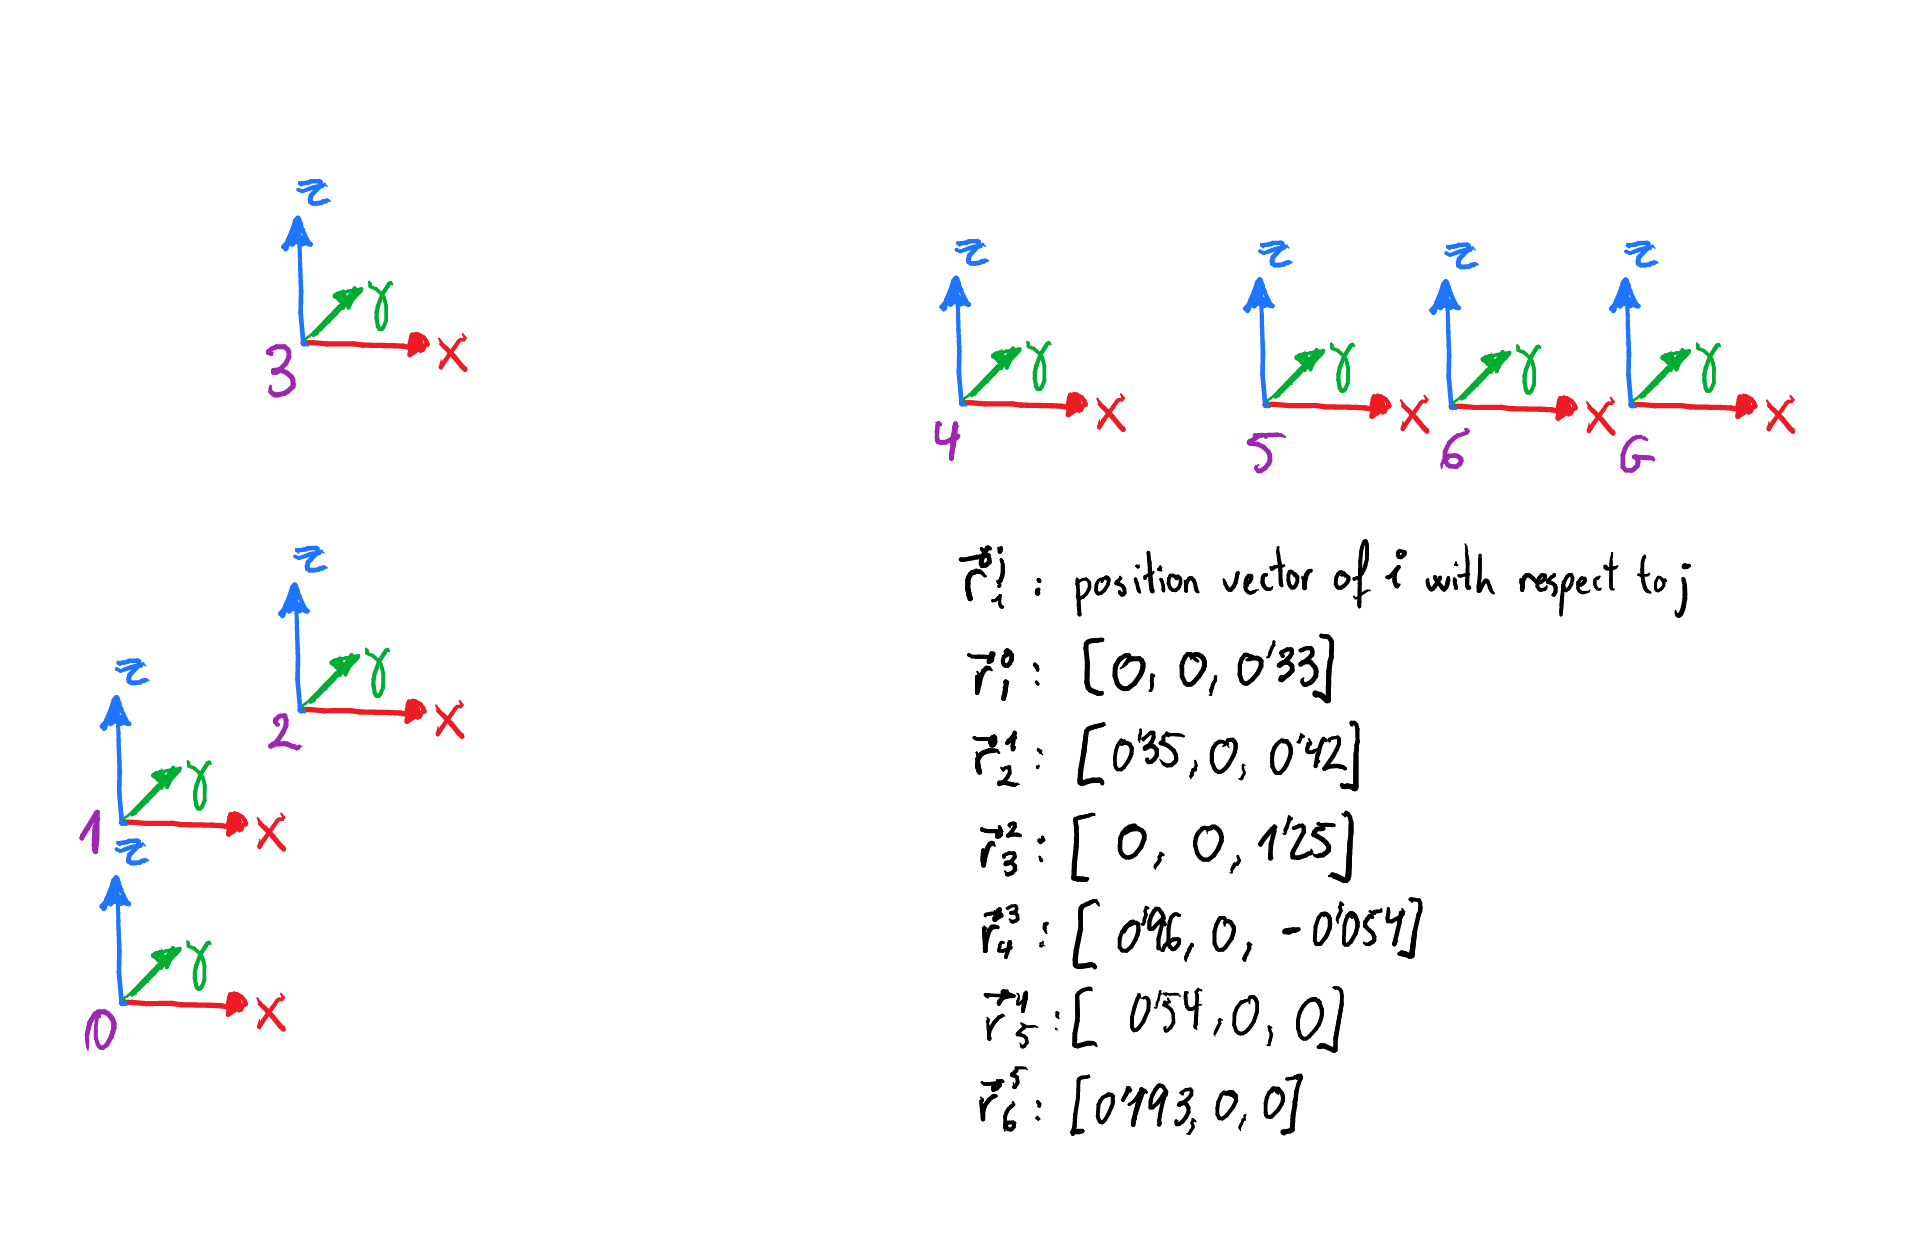 z
γ
3 x
z z z z
γ γ γ γ
x x x x
4 5 6 G
z
γ
2 x
z
γ
1 x
z
γ
x
0
r⃗ᵢʲ : position vector of i with respect to j
r⃗₁⁰ : [0, 0, 0'33]
r⃗₂¹ : [0'35, 0, 0'42]
r⃗₃² : [0, 0, 1'25]
r⃗₄³ : [0'96, 0, -0'054]
r⃗₅⁴ : [0'54, 0, 0]
r⃗₆⁵ : [0'193, 0, 0]